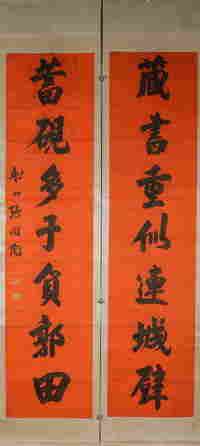 藏書重似連城璧
蓄硯多于負郭田